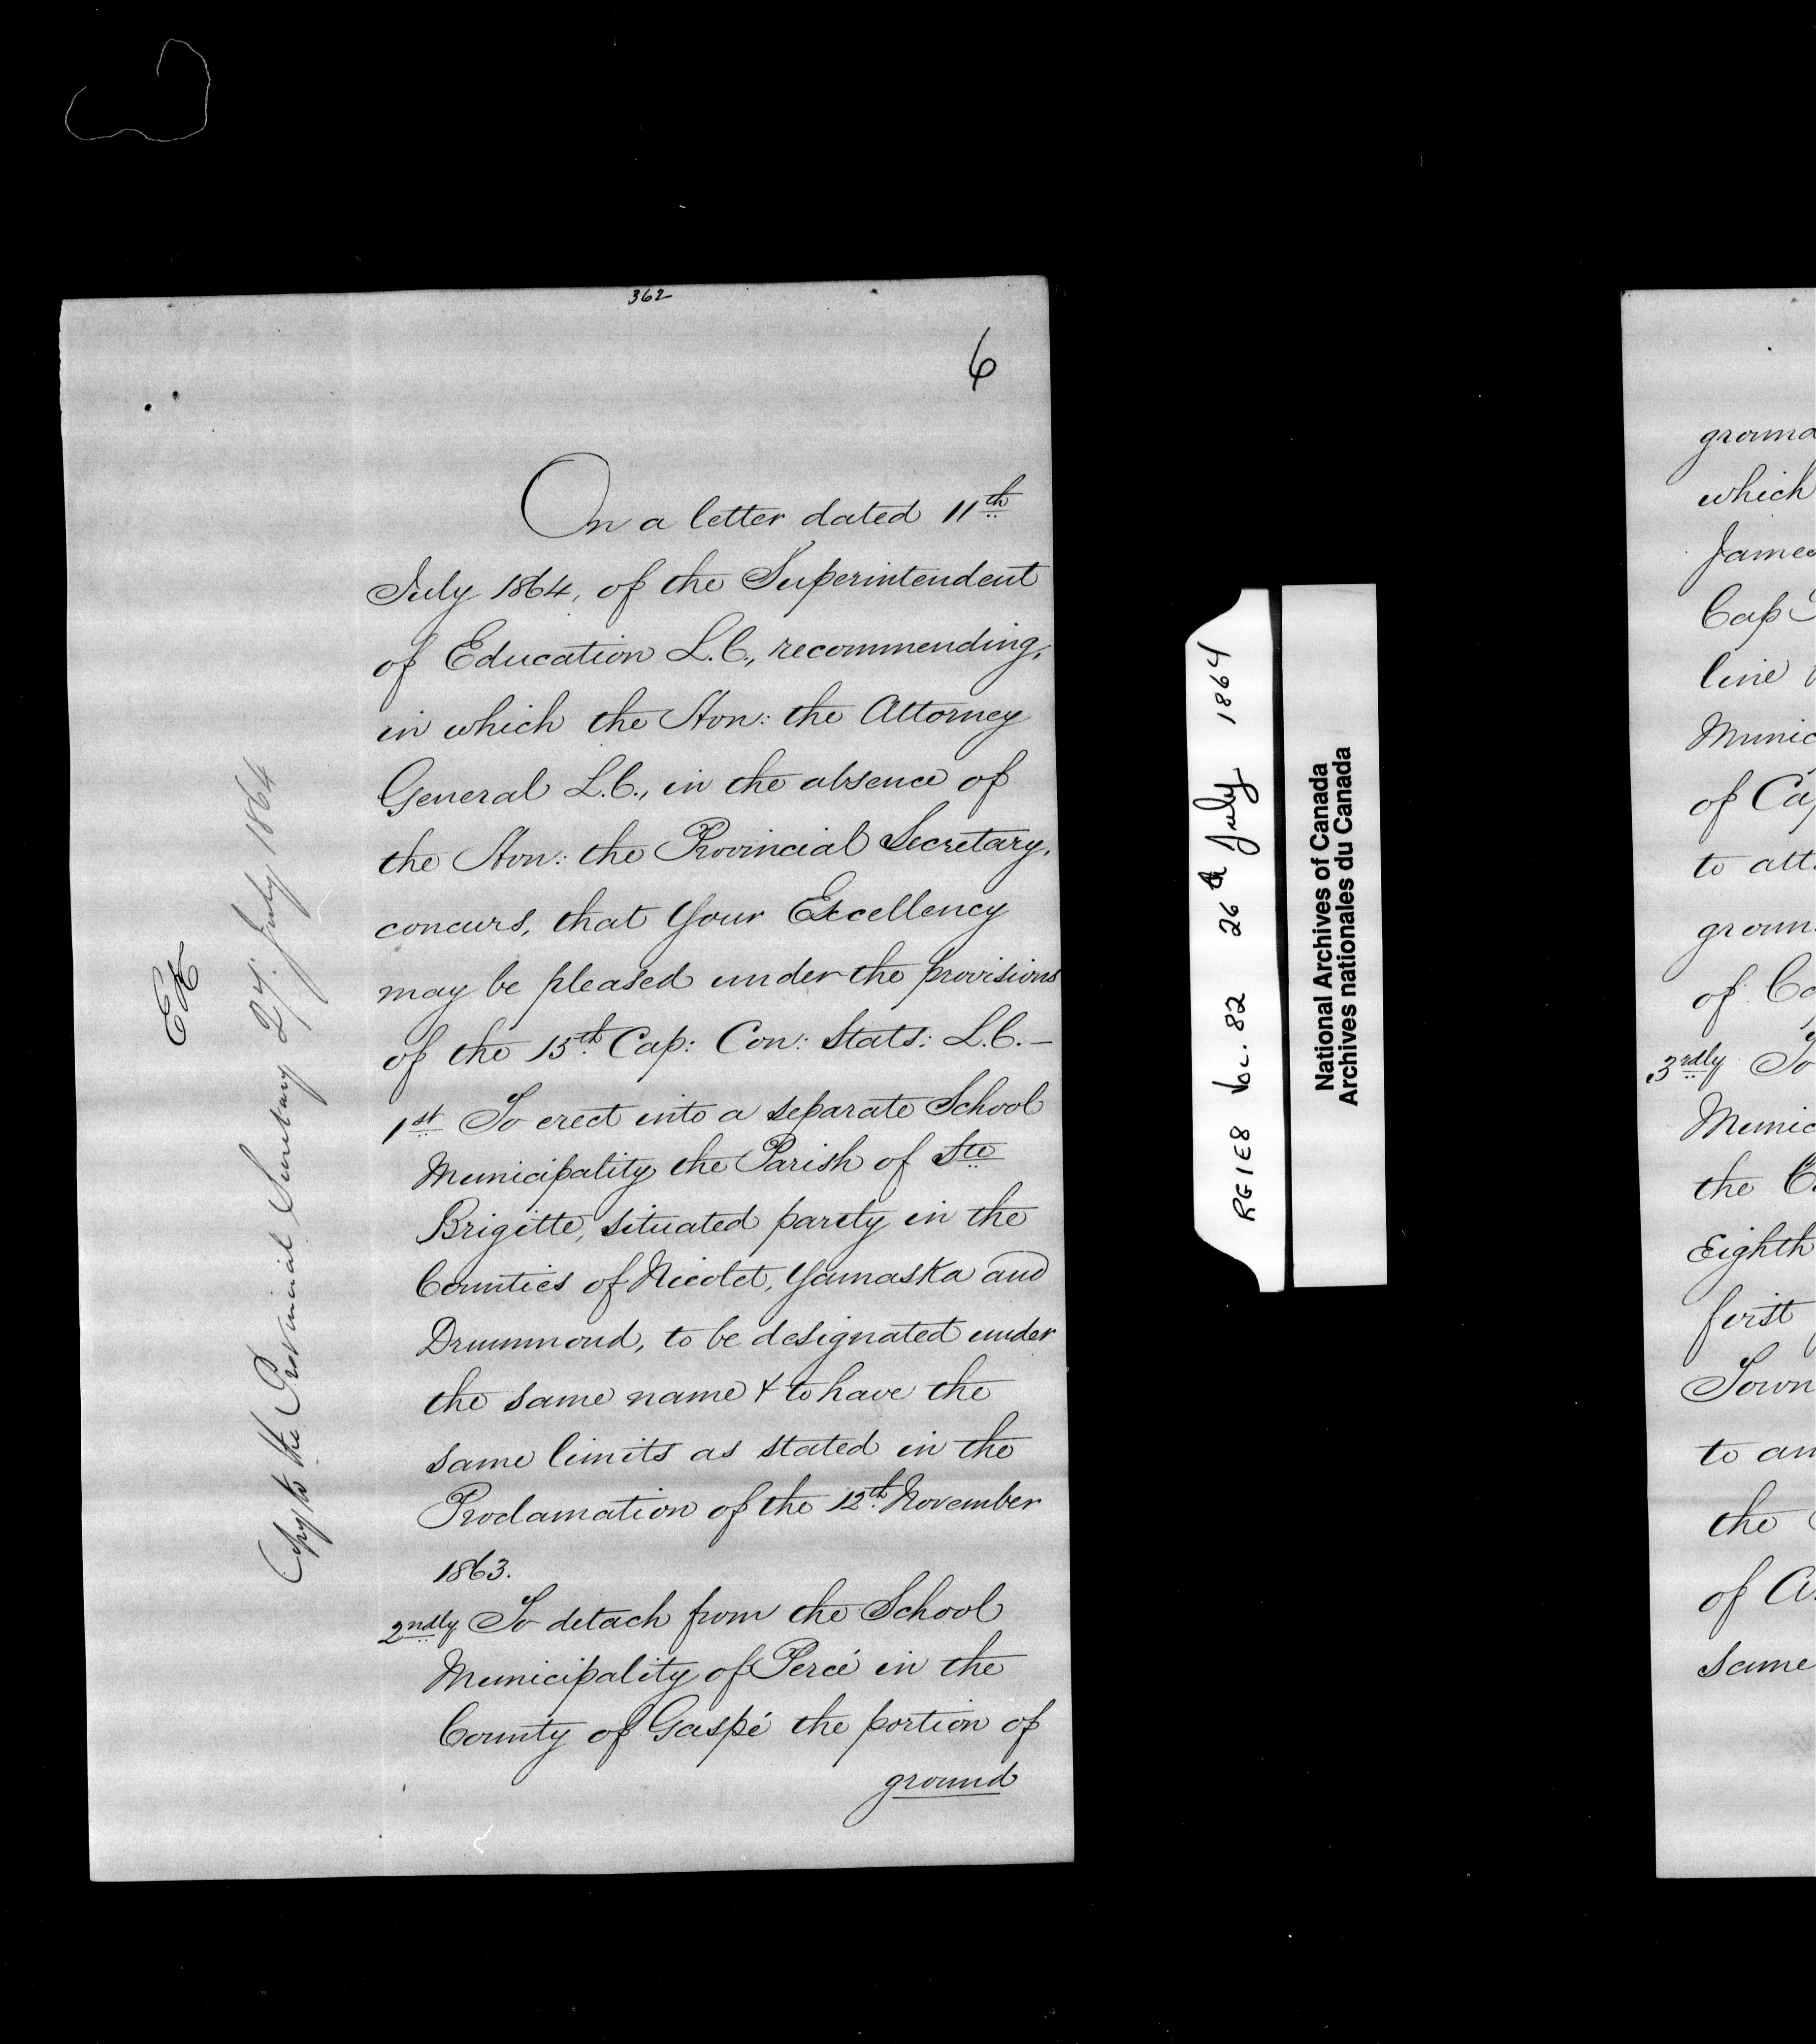 362
6
On a letter dated 11th
July 1864, of the Superintendent
of Education L.C., recommending,
in which the Hon: the Attorney
General L.C., in the absence of
the Hon: the Provincial Secretary,
concurs, that Your Excellency
may be pleased under the provisions
of the 15th Cap: Con: Stats: L.C. —
1st To erect into a separate School
Municipality the Parish of Ste
Brigitte, situated partly in the
Counties of Nicolet, Yamaska and
Drummond, to be designated under
the same name & to have the
same limits as stated in the
Proclamation of the 12th November
1863.
2ndly To detach from the School
Municipality of Percé in the
County of Gaspé the portion of
ground
Copy to the Provincial Secretary 27. July 1864
RG1E8 Vol. 82 26th July 1864
National Archives of Canada
Archives nationales du Canada
ground
which
James
Cap
line
Munic
of Ca
to att
groun
of Ca
3rdly To
Munic
the C
Eighth
first
Town
to an
the
of A
same